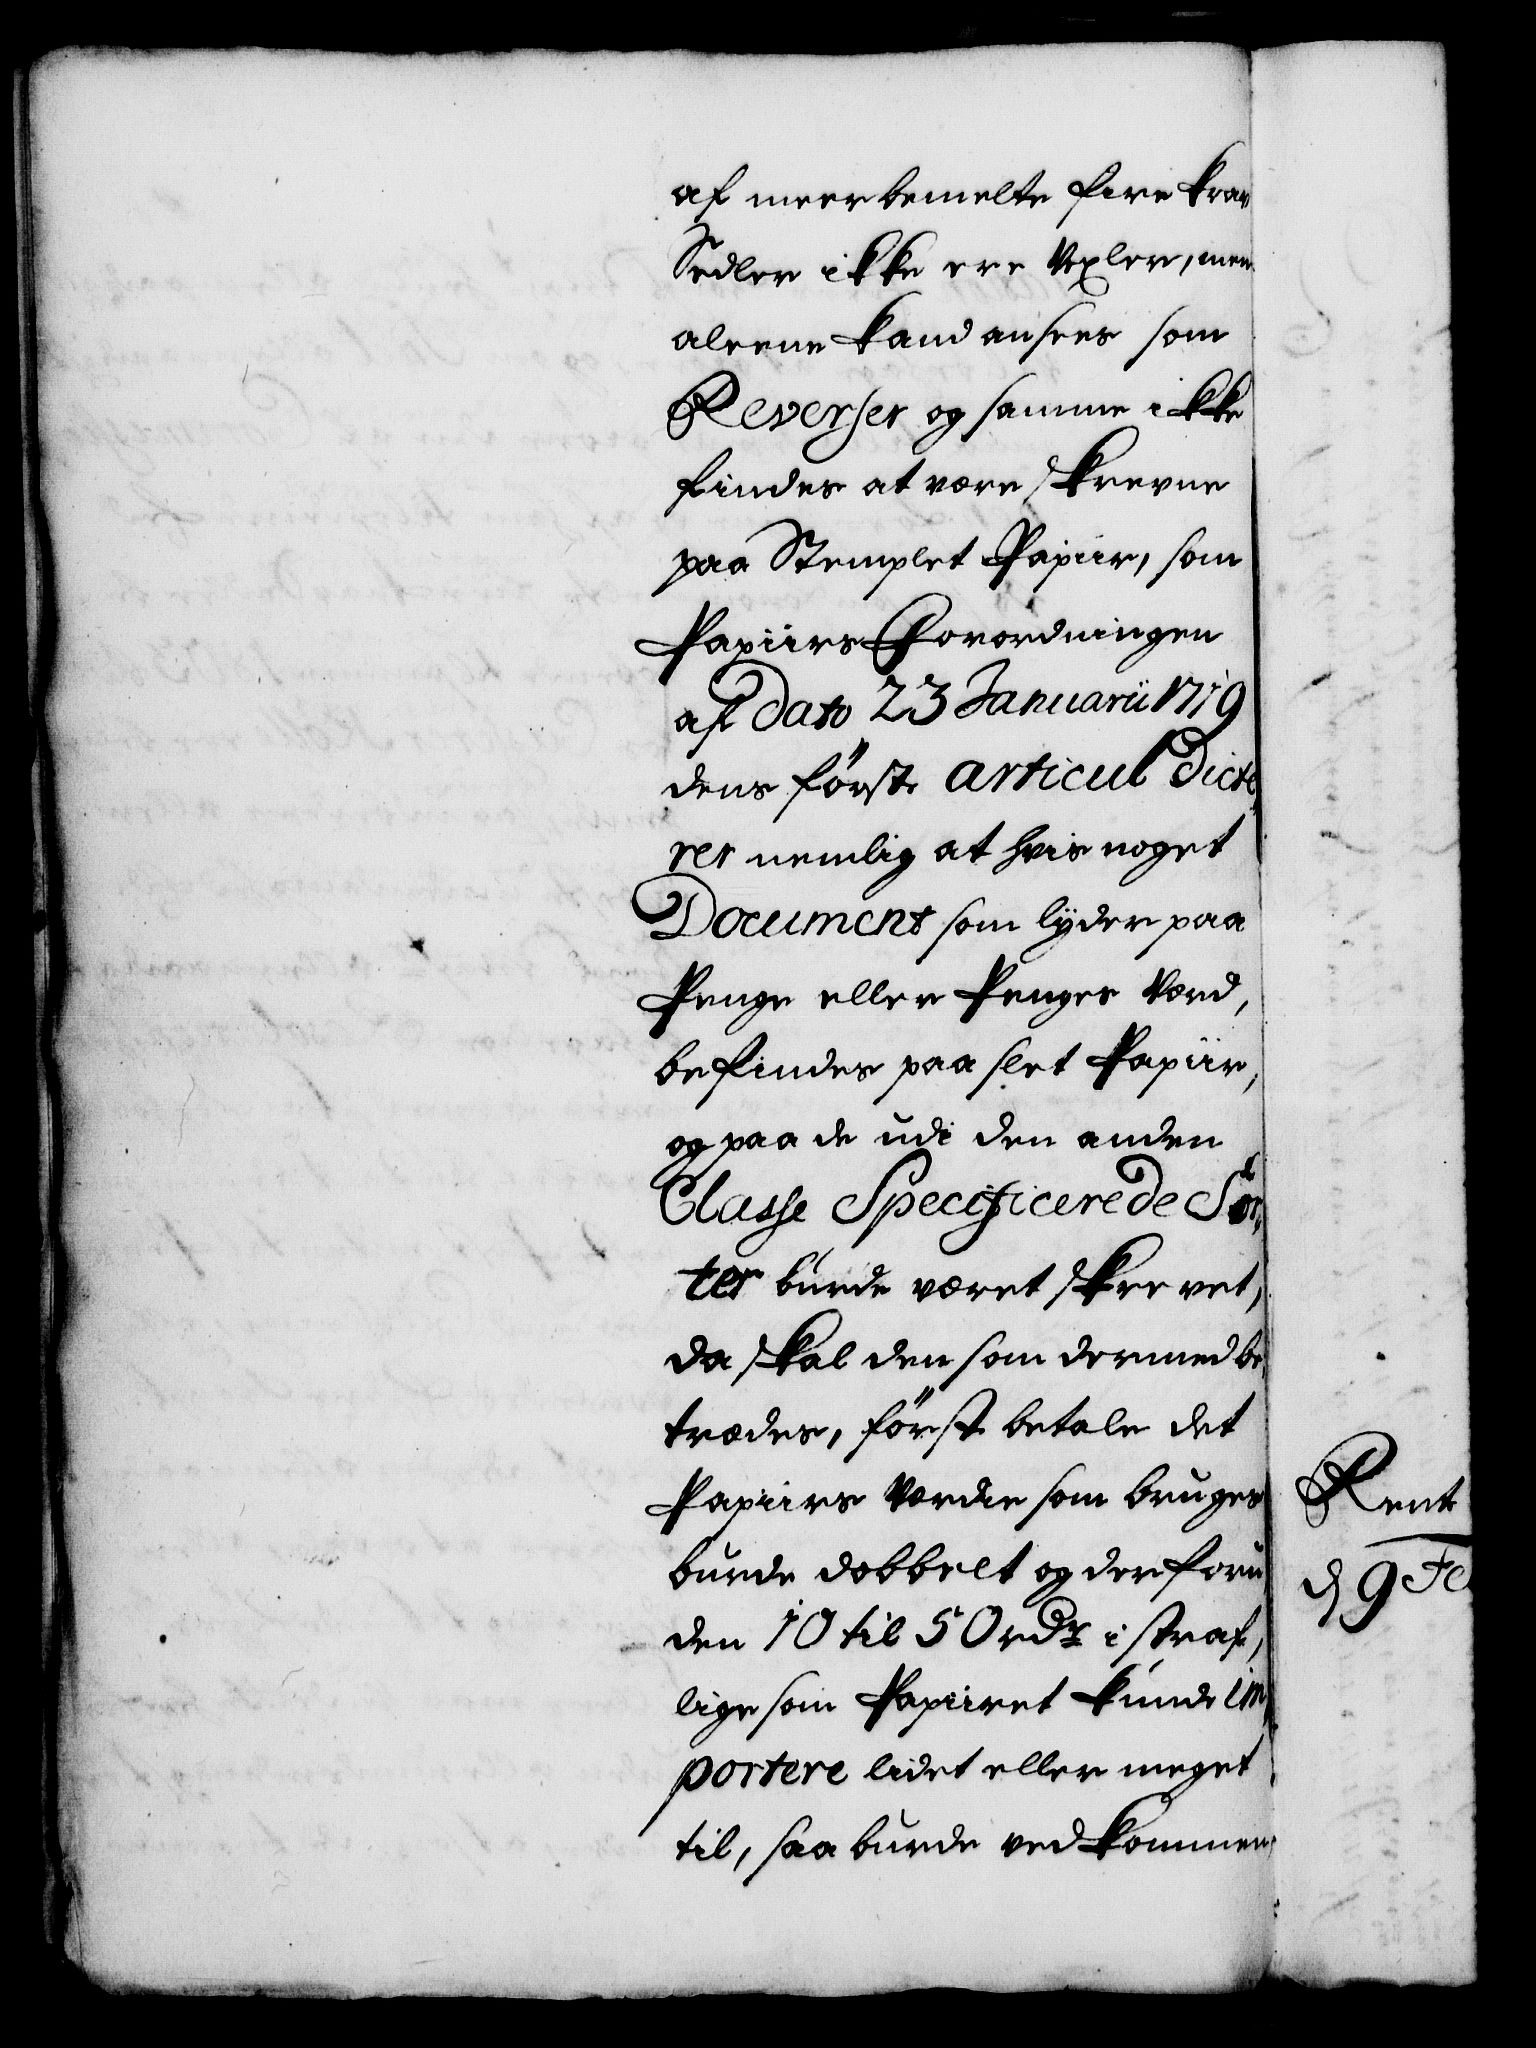 af meerbemelte fire krav
Sedler ikke ere Vexler, men
aleene kand ansees som
Reverser og samme ikke
findes at være skrevne
paa Stemplet Papiir, som
Papiirs Forordningen
af Dato 23 Januarii 1719
dens først articul Dicte,
rer nemlig at hvis noget
Document som lÿder paa
Penge eller Penges Værd,
befindes paa slet Papiir,
og paa de udi den anden
Classe Specificerede Sor,
ter burde været skrevet,
da skal den som dermed be,
trædes, først betale det
Papiirs Værdie som bruges
burde dobbelt og derforu
den 10 til 50 rdr i straf,
lige som Papiiret kunde im,
portere lidet eller meget
til, saa burde vedkommen,
Rent
d 9 Fe